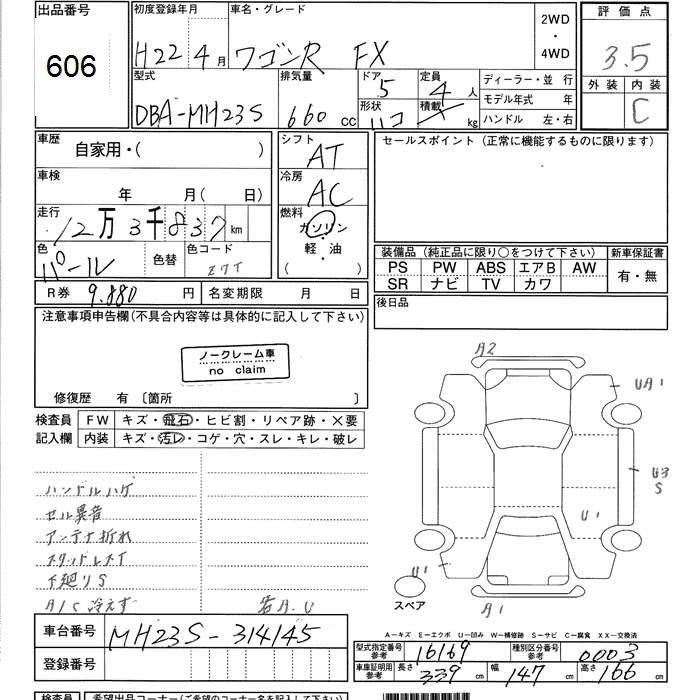 出品番号
606
初度登録年月
H22 4月
車名・グレード
ワゴンR FX
2WD
・
4WD
評価点
3.5
外装 内装
C
型式
DBA-MH23S
排気量
660 cc
ドア
5
形状
ハコ
定員
4人
積載
kg
ディーラー・並 行
モデル年式 年
ハンドル 左・右
車歴
自家用・( )
車検
年 月( 日)
走行
12万3千837 km
色
パール
色替
色コード
Z7T
シフト
AT
冷房
AC
燃料
ガソリン
・
軽・油
( )
セールスポイント(正常に機能するものに限ります)
装備品(純正品に限り○をつけて下さい)
新車保証書
PS PW ABS エアB AW
SR ナビ TV カワ
有・無
後日品
R券 9.880 円
名変期限 月 日
注意事項申告欄(不具合内容等は具体的に記入して下さい)
ノークレーム車
no claim
修復歴 有〔箇所 〕
検査員
記入欄
FW キズ・飛石・ヒビ割・リペア跡・×要
内装 キズ・汚レ・コゲ・穴・スレ・キレ・破レ
ハンドルハゲ
セル異音
アンテナ折れ
スタッドレスT
下廻りS
A/C 冷えず
若A.U
A2
UA1
U3
S
U1
U1
A1
スペア
車台番号
MH23S-314145
登録番号
A-キズ E-エクボ U-凹み W-補修跡 S-サビ C-腐食 XX-交換済
型式指定番号
参考
16169
種別区分番号
参考
0003
車庫証明用
参考
長さ 339 cm
幅 147 cm
高さ 166 cm
検査員
希望出品コーナー(ご希望のコーナー名を記入